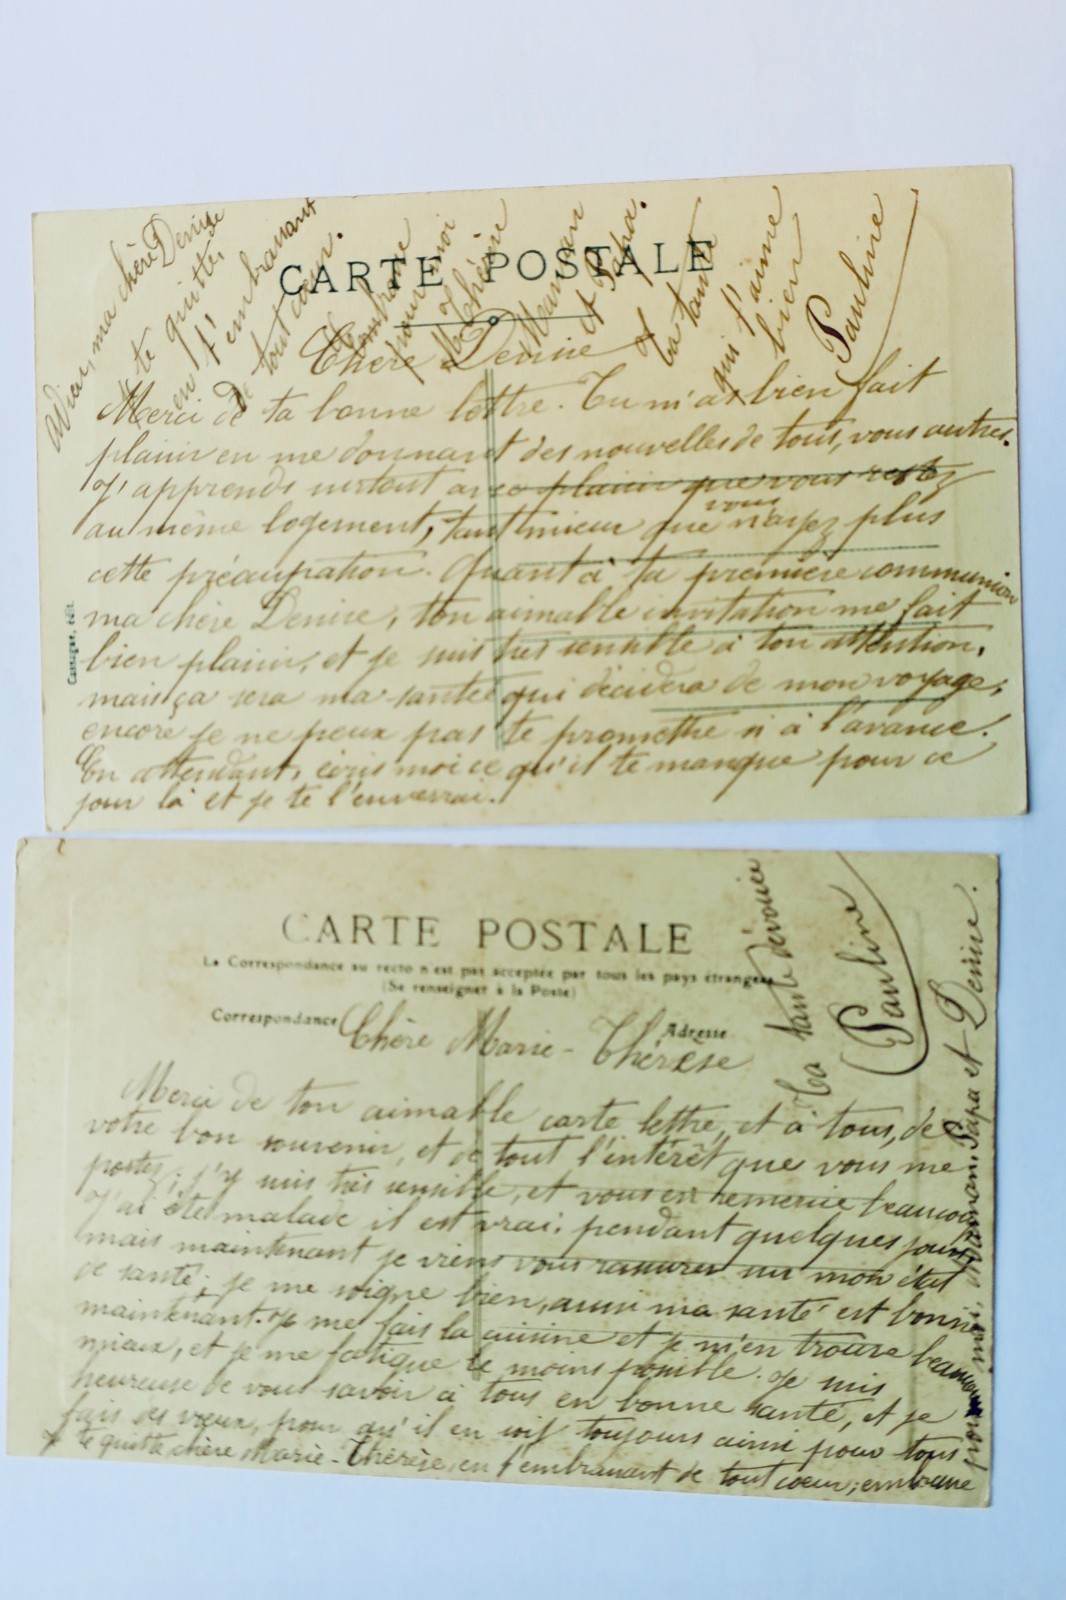 CARTE POSTALE
Chère Denise
Merci de ta bonne lettre. Tu m'as bien fait
plaisir en me donnant des nouvelles de tous, vous autres.
J'apprends surtout avec plaisir que vous restez
au même logement, tant mieux que vous n'ayez plus
cette préocupation. Quant à ta première communion
ma chère Denise, ton aimable invitation me fait
bien plaisir, et je suis très sensible à ton attention,
mais ça sera ma santée qui décidera de mon voyage,
encore je ne peux pas te promettre si à l'avance.
En attendant, écris moi ce qu'il te manque pour ce
jour là et je te l'enverrai.
Adieu, ma chère Denise
je te quitte,
en t'embrassant
de tout coeur.
Embrasse
pour moi
M. Thérèse
Maman
et Papa.
Ta tante
qui t'aime
bien
Pauline
CARTE POSTALE
La Correspondance au recto n'est pas acceptée par tous les pays étrangers
(Se renseigner à la Poste)
Correspondance
Adresse
Chère Marie-Thérèse
Merci de ton aimable carte lettre, et à tous, de
votre bon souvenir, et de tout l'intérêt que vous me
portez, j'y suis très sensible, et vous en remercie beaucoup
J'ai été malade il est vrai, pendant quelques jours,
mais maintenant je viens vous rassurer sur mon état
de santé; je me soigne bien, aussi ma santé est bonne
maintenant. Je me fais la cuisine et je m'en trouve beaucoup
mieux, et je me fatigue le moins possible. Je suis
heureuse de vous savoir à tous en bonne santé, et je
fais des vœux, pour qu'il en soit toujours ainsi pour tous
Je te quitte chère Marie-Thérèse, en t'embrassant de tout coeur; embrasse
pour moi, Maman, Papa et Denise.
Ta tante dévouée
Pauline